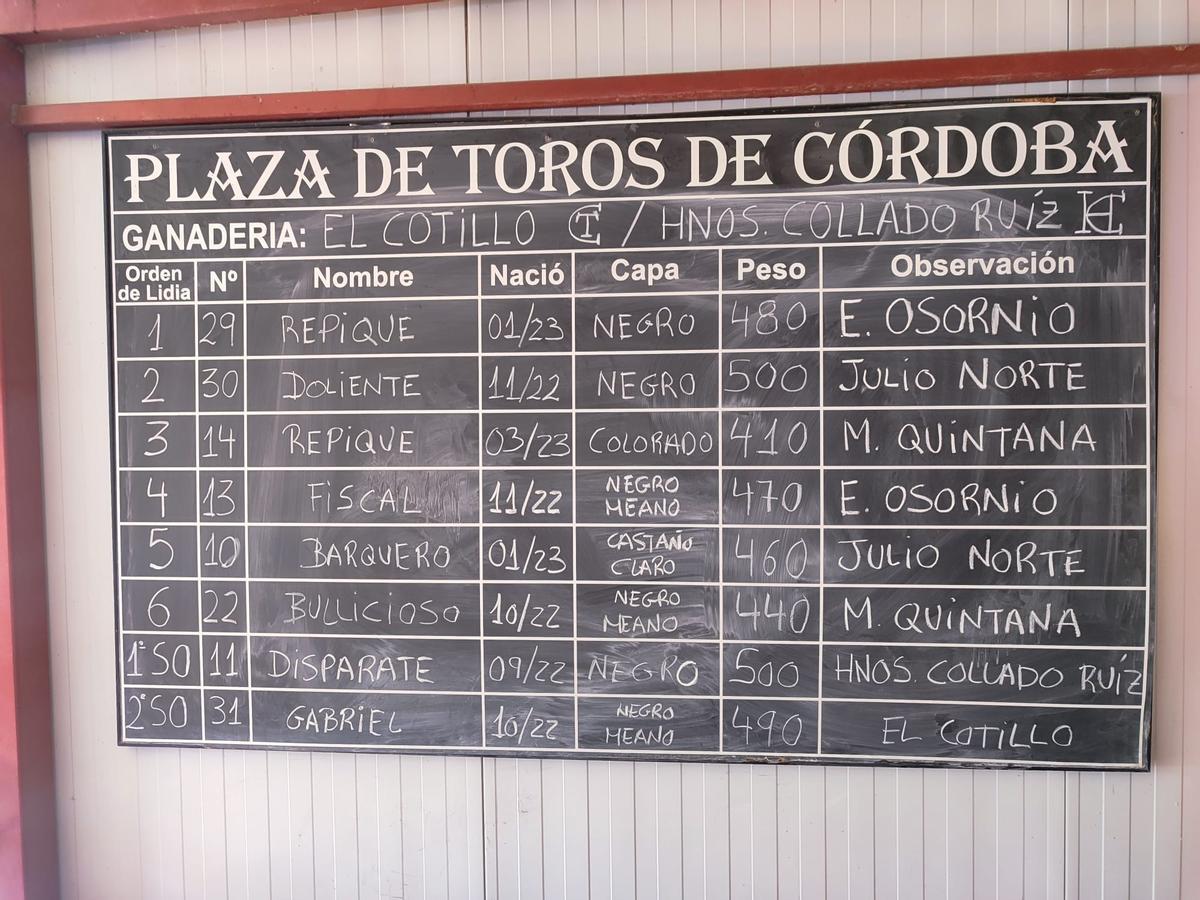 PLAZA DE TOROS DE CÓRDOBA
GANADERIA: EL COTILLO / HNOS. COLLADO RUÍZ
Orden de Lidia Nº Nombre Nació Capa Peso Observación
1 29 REPIQUE 01/23 NEGRO 480 E. OSORNIO
2 30 DOLIENTE 11/22 NEGRO 500 JULIO NORTE
3 14 REPIQUE 03/23 COLORADO 410 M. QUINTANA
4 13 FISCAL 11/22 NEGRO MEANO 470 E. OSORNIO
5 10 BARQUERO 01/23 CASTAÑO CLARO 460 JULIO NORTE
6 22 BULLICIOSO 10/22 NEGRO MEANO 440 M. QUINTANA
1º SO 11 DISPARATE 09/22 NEGRO 500 HNOS. COLLADO RUÍZ
2º SO 31 GABRIEL 10/22 NEGRO MEANO 490 EL COTILLO